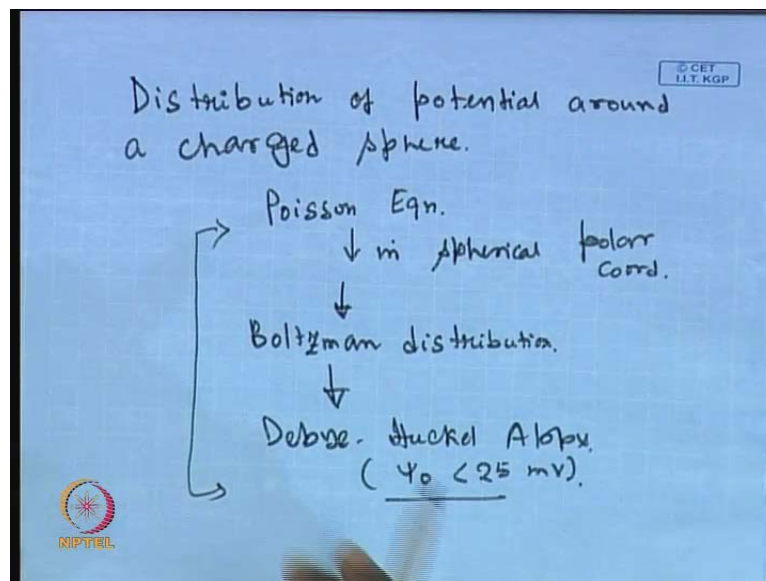 © CET
I.I.T. KGP
Distribution of potential around
a charged sphere.
Poisson Eqn.
↓ in spherical polar
coord.
↓
Boltzman distribution.
↓
Debye-Huckel Appx.
( ψ₀ < 25 mV).
NPTEL